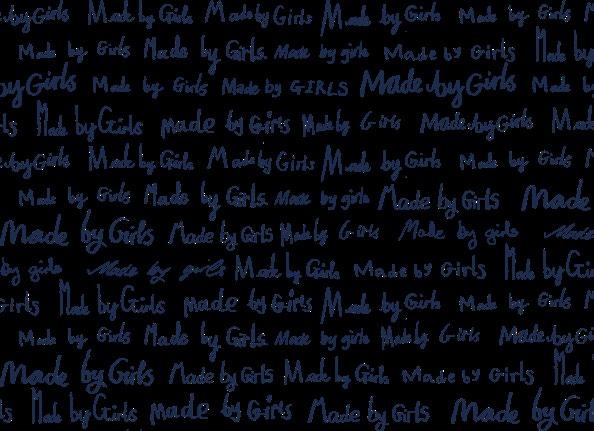 by Girls Made by Girls Made by Girls Made by Girls Made by Girls
Made by Girls Made by Girls. Made by girls Made by Girls Made by
by Girls Made by Girls Made by GIRLS Made by Girls Made by
ls Made by Girls made by Girls Made by Girls Made by Girls Mad
by Girls Made by Girls Made by Girls Made by Girls Made by Girls
Made by Girls Made by Girls. Made by girls Made by Girls Made
Made by Girls Made by Girls Made by Girls Made by girls Made
by girls Made by girls Made by Girls Made by Girls Made by Gi
Girls Made by Girls made by Girls Made by Girls Made by Girls
Made by Girls Made by Girls. Made by girls Made by Girls Made by Gi
Made by Girls Made by Girls Made by Girls Made by Girls Made
ls Made by Girls made by Girls Made by Girls Made by Girls